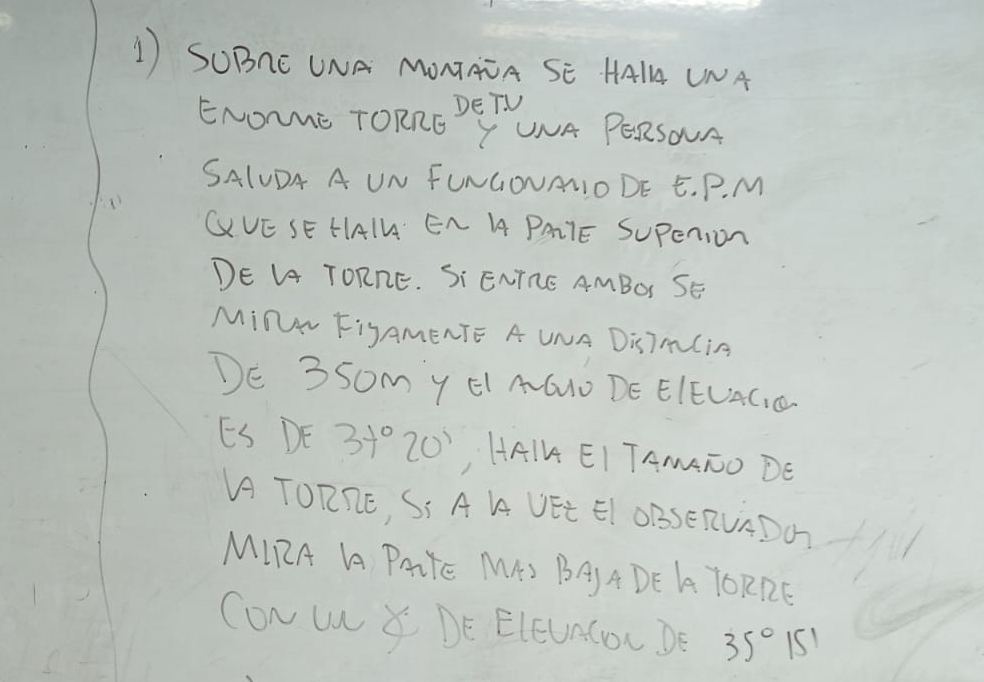 1) SOBRE UNA MONTAÑA SE HALLA UNA
ENORME TORRE DE TV Y UNA PERSONA
SALUDA A UN FUNCIONARIO DE E.P.M
QUE SE HALLA EN LA PARTE SUPERIOR
DE LA TORRE. Si ENTRE AMBOS SE
MIRAN FIJAMENTE A UNA DISTANCIA
DE 350M Y El ANGULO DE ElEVACIO
ES DE 37° 20', HALLA El TAMAÑO DE
LA TORRE, Si A LA VEZ El OBSERVADOR
MIRA LA PARTE MAS BAJA DE LA TORRE
CON UN ∡ DE ElEVACION DE 35° 15'